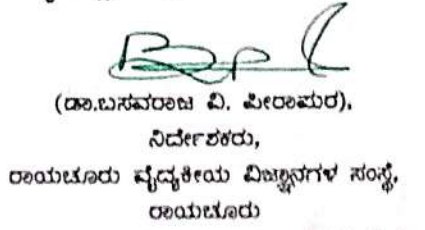 (ಡಾ.ಬಸವರಾಜ ವಿ. ಪೀರಾಪುರ),
ನಿರ್ದೇಶಕರು,
ರಾಯಚೂರು ವೈದ್ಯಕೀಯ ವಿಜ್ಞಾನಗಳ ಸಂಸ್ಥೆ,
ರಾಯಚೂರು